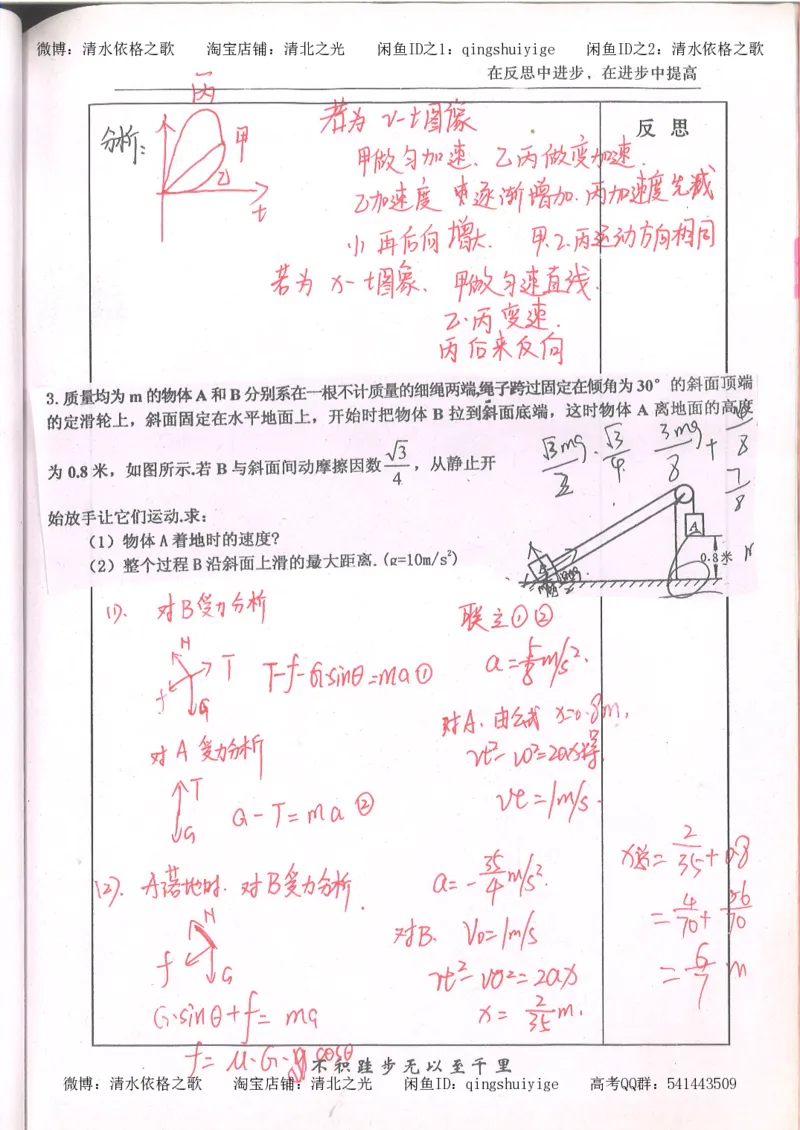 微博：清水依格之歌 淘宝店铺：清北之光 闲鱼ID之1：qingshuiyige 闲鱼ID之2：清水依格之歌
在反思中进步，在进步中提高
反 思
分析：
丙
甲
乙
t
若为 v-t图像
甲做匀加速、乙丙做变加速.
乙加速度 逐渐增加.丙加速度先减
小 再后向增大. 甲.乙.丙运动方向相同
若为 x-t图象、甲做匀速直线.
乙.丙 变速.
丙后来反向
3.质量均为 m 的物体 A 和 B 分别系在一根不计质量的细绳两端,绳子跨过固定在倾角为 30° 的斜面顶端
的定滑轮上，斜面固定在水平地面上，开始时把物体 B 拉到斜面底端，这时物体 A 离地面的高度
为 0.8 米，如图所示.若 B 与斜面间动摩擦因数 √3/4 ，从静止开
√3mg/2 · √3/4 3mg/8 +
7/8
始放手让它们运动.求：
（1）物体 A 着地时的速度?
（2）整个过程 B 沿斜面上滑的最大距离.(g=10m/s²)
A
0.8 米
(1). 对B受力分析
N
T
f
G
T-f-G·sinθ=ma①
对 A 受力分析
T
G
G-T=ma ②
联立①②
a=5/8m/s².
对A. 由公式 x=0.8m,
vt²-v0²=2ax得
vt=1m/s.
(2). A落地时. 对B受力分析.
N
f
G
G·sinθ+f=ma
f=μ·G·cosθ
a=-35/4m/s².
对B. V0=1m/s
vt²-v0²=2ax
x=2/35m.
x总=2/35+0.8
=4/70+56/70
=6/7m
不积跬步无以至千里
微博：清水依格之歌 淘宝店铺：清北之光 闲鱼ID：qingshuiyige 高考QQ群：541443509